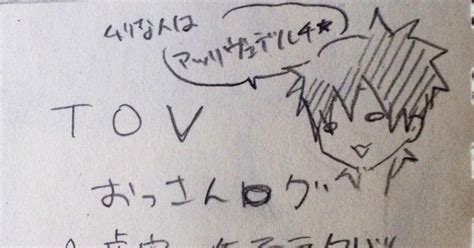 ムリな人は
アッリヴェデルチ★
TOV
おっさんログ